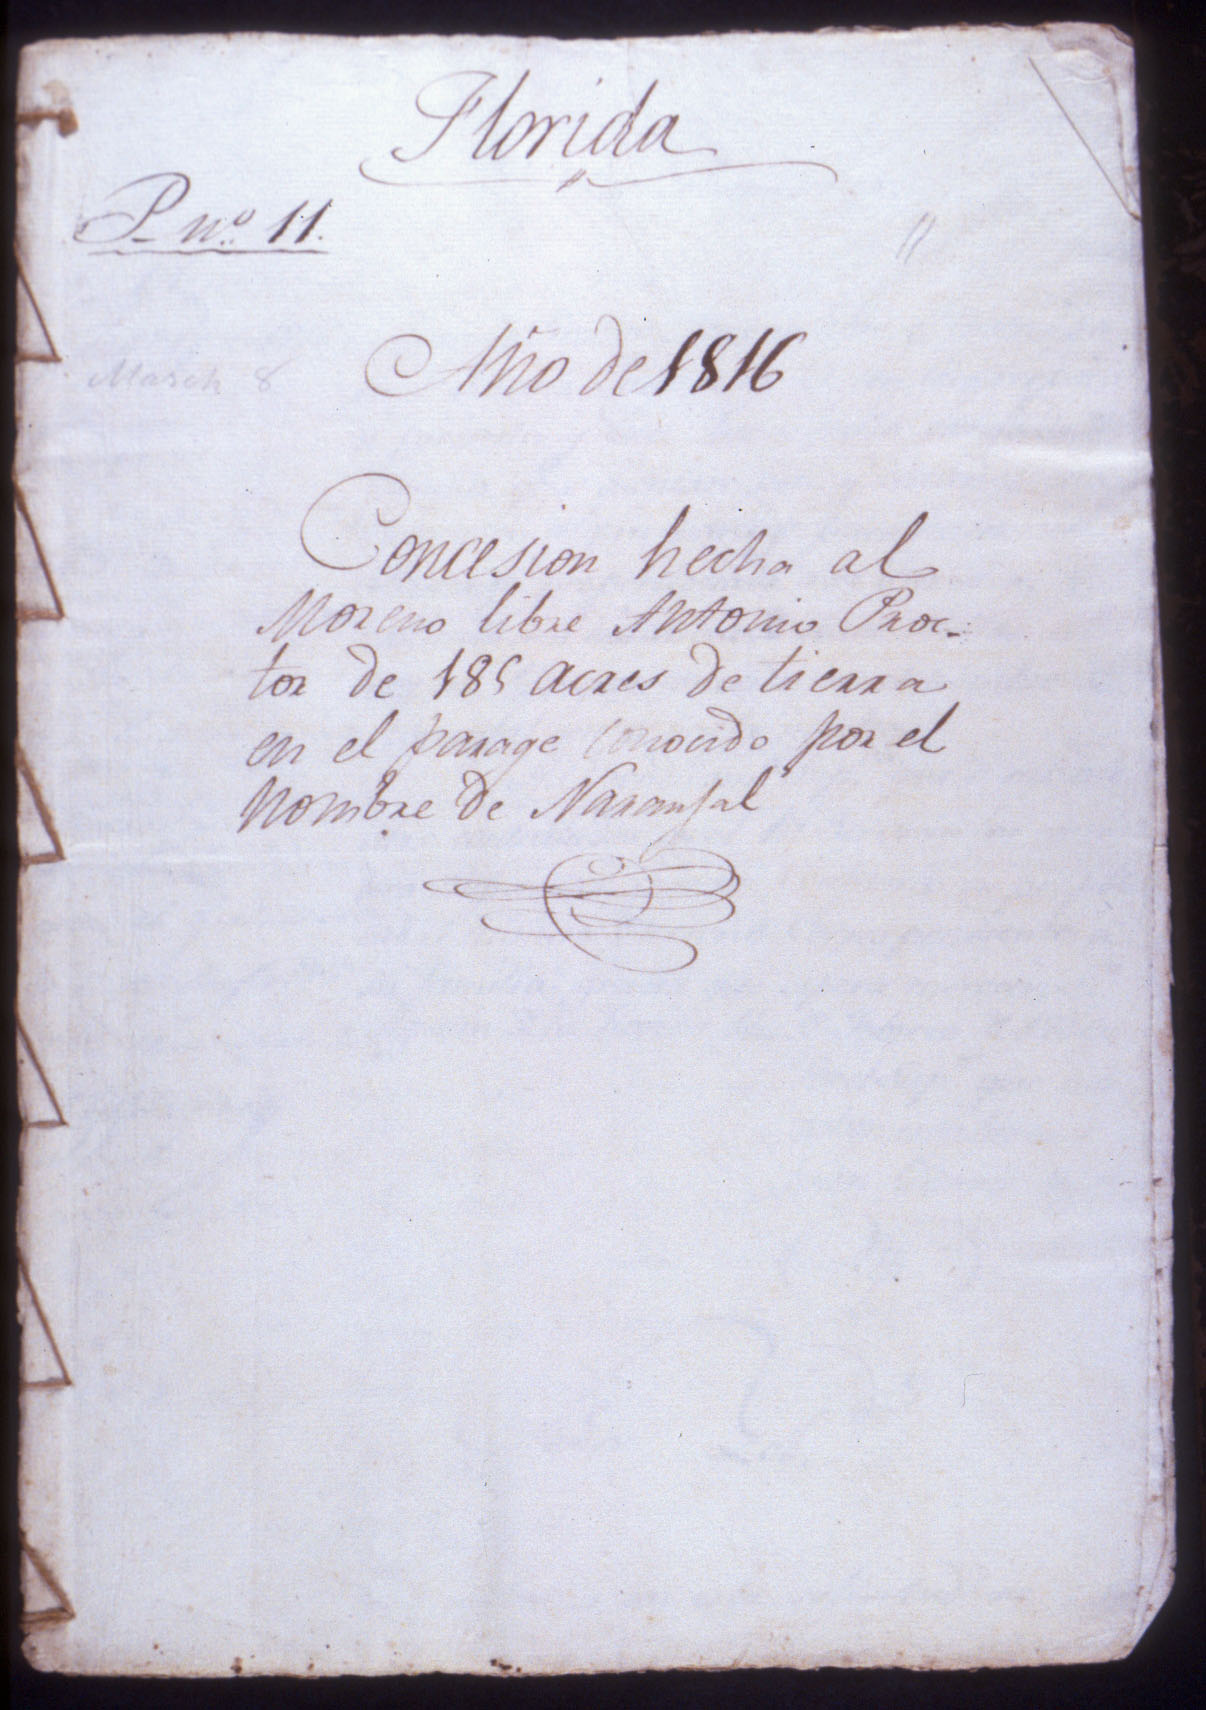 Florida
P. nº. 11.
11
Año de 1816
March 8
Concesion hecha al
Moreno libre Antonio Proc-
tor de 185 acres de tierra
en el parage conocido por el
Nombre de Naranjal